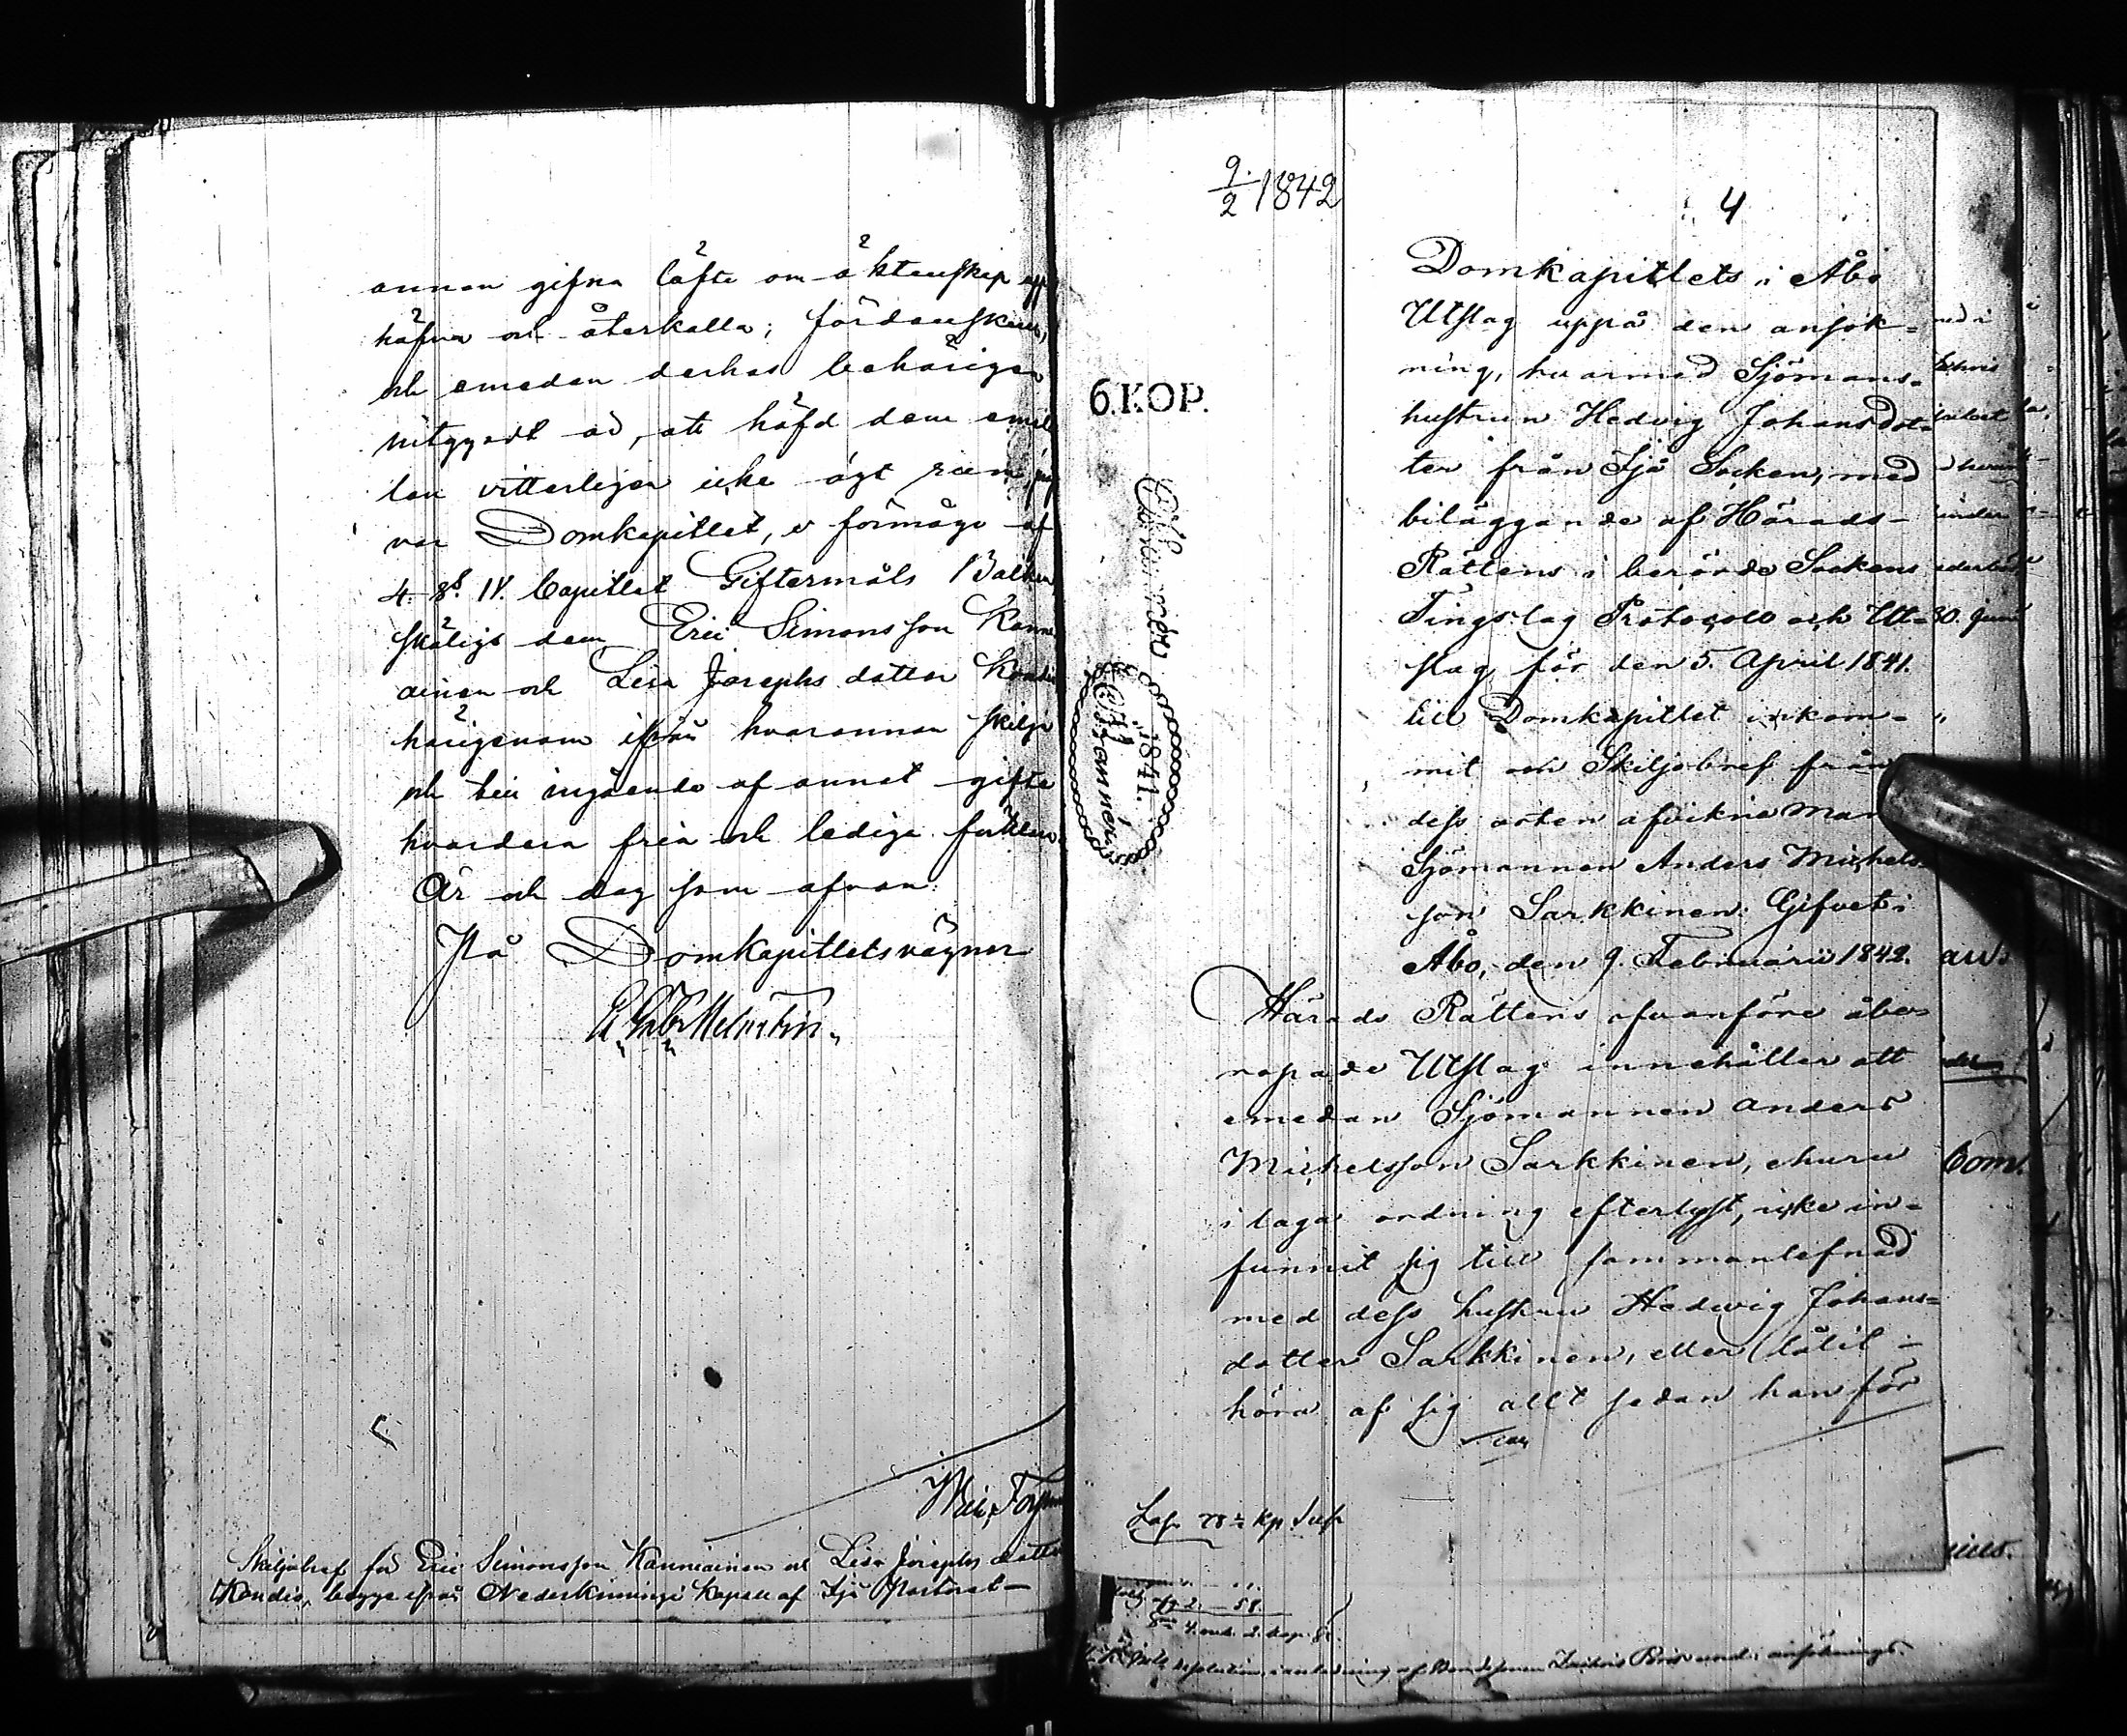 annan gifna löfte om äktenskap upp
häfva och återkalla; fördenskull,
och emedan derhos behörigen
vitgjordt är, att häfd dem emel
lan vitterligen icke ägt rum,
var Domkapitlet, i förmågo af
4. §. IV. Capitlet Giftermåls Balken
skäligt dem Eric Simonsson Kanni
ainen och Lisa Josephs dotter Kondio
härigenom ifrån hvarannan skilja
och till ingående af annat gifte
hvardera fria och lediga förklara.
År och dag som ofvan.
På Domkapitlets vägnar
Skiljobref för Eric Simonsson Kanniainen och Lisa Josephs dotter
Kondio, begge ifrån Nederkiimingi Kapell af Ijo Pastorat
9/2 1842
4
6.KOP.
1841.
Domkapitlets i Åbo
Utslag uppå den ansök-
ning, hvarmed Sjömans-
hustrun Hedvig Johansdot-
ter från Ijå Socken, med
biläggande af Härads-
Rättens i berörde Sockens
Tingslag Protocoll och Ut-
slag för den 5. April 1841.
till Domkapitlet inkom-
mit och Skiljobref från
dess orten afvikne Man
Sjömannen Anders Michels-
son Sarkkinen. Gifvet i
Åbo, den 9. Februarii 1842.
Härads Rättens ofvanföre åbe-
ropade Utslag innehåller att
emedan Sjömannen Anders
Michelsson Sarkkinen, ehuru
i laga ordning efterlyst, icke in-
funnit sig till sammanlefnad
med dess hustru Hedwig Johans-
dotter Sarkkinen, eller låtit
höra af sig allt sedan han för